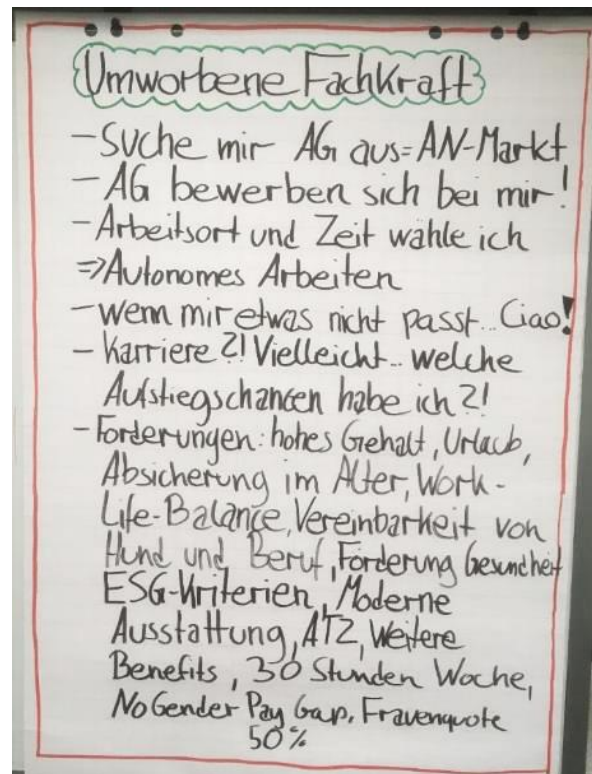 Umworbene Fachkraft
- Suche mir AG aus = AN-Markt
- AG bewerben sich bei mir!
- Arbeitsort und Zeit wähle ich
⇒ Autonomes Arbeiten
- wenn mir etwas nicht passt... Ciao!
- Karriere?! Vielleicht... welche
Aufstiegschancen habe ich?!
- Forderungen: hohes Gehalt, Urlaub,
Absicherung im Alter, Work-
Life-Balance, Vereinbarkeit von
Hund und Beruf, Förderung Gesundheit
ESG-Kriterien, Moderne
Ausstattung, ATZ, Weitere
Benefits, 30 Stunden Woche,
No Gender Pay Gap, Frauenquote
50%